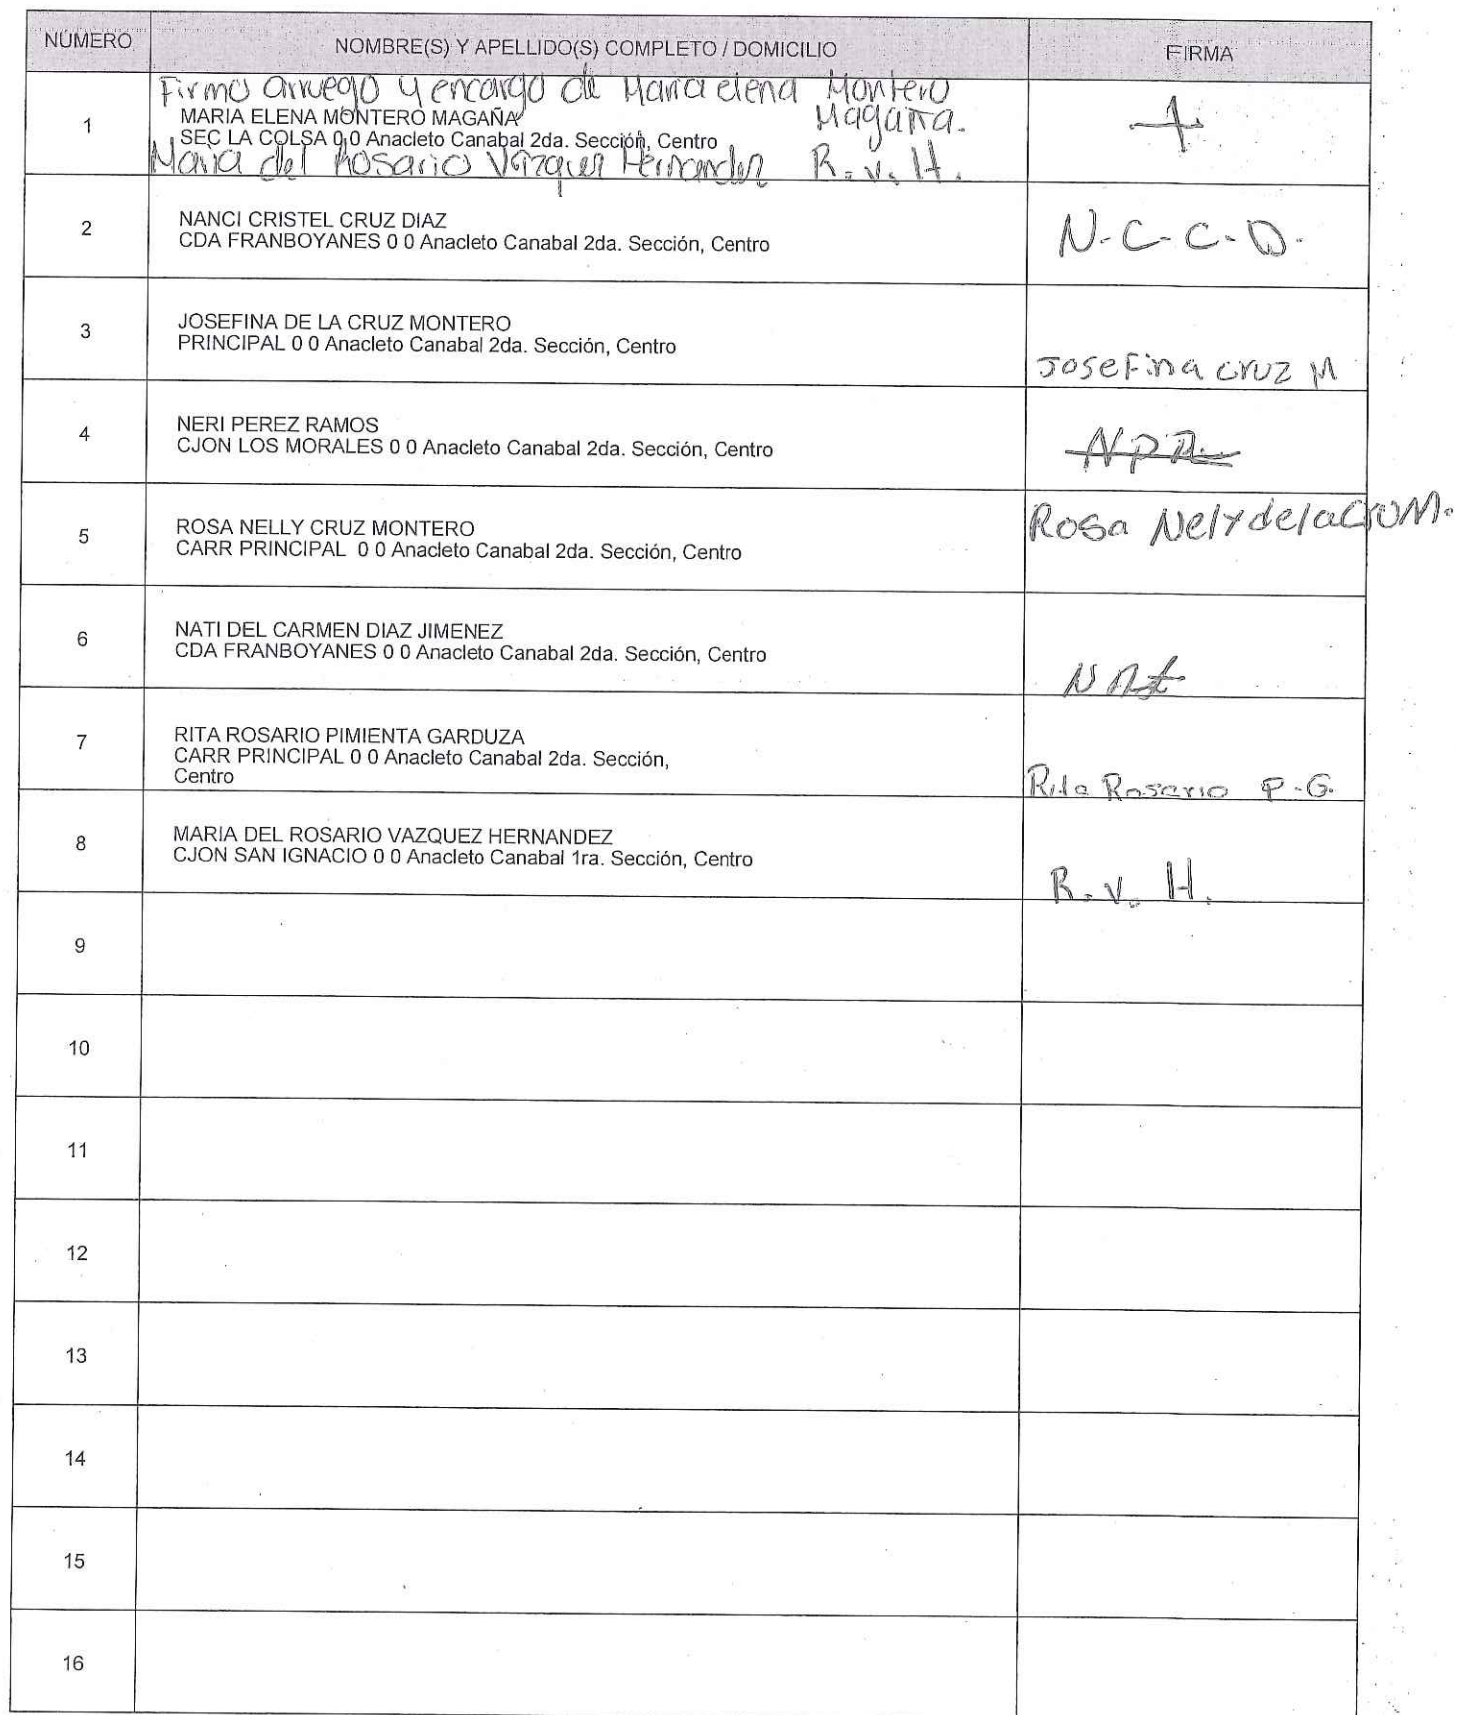 NÚMERO NOMBRE(S) Y APELLIDO(S) COMPLETO / DOMICILIO FIRMA
Firmo arruego y encargo de Maria elena Montero
1 MARIA ELENA MONTERO MAGAÑA Magaña.
SEC LA COLSA 0 0 Anacleto Canabal 2da. Sección, Centro
Maria del Rosario Vázquez Hernandez R.v.H.
2 NANCI CRISTEL CRUZ DIAZ
CDA FRANBOYANES 0 0 Anacleto Canabal 2da. Sección, Centro
N-C-C-D.
3 JOSEFINA DE LA CRUZ MONTERO
PRINCIPAL 0 0 Anacleto Canabal 2da. Sección, Centro
Josefina cruz M
4 NERI PEREZ RAMOS
CJON LOS MORALES 0 0 Anacleto Canabal 2da. Sección, Centro
NPR
5 ROSA NELLY CRUZ MONTERO
CARR PRINCIPAL 0 0 Anacleto Canabal 2da. Sección, Centro
Rosa Nely de la M.
6 NATI DEL CARMEN DIAZ JIMENEZ
CDA FRANBOYANES 0 0 Anacleto Canabal 2da. Sección, Centro
7 RITA ROSARIO PIMIENTA GARDUZA
CARR PRINCIPAL 0 0 Anacleto Canabal 2da. Sección,
Centro
Rita Rosario P-G.
8 MARIA DEL ROSARIO VAZQUEZ HERNANDEZ
CJON SAN IGNACIO 0 0 Anacleto Canabal 1ra. Sección, Centro
R.v.H.
9
10
11
12
13
14
15
16